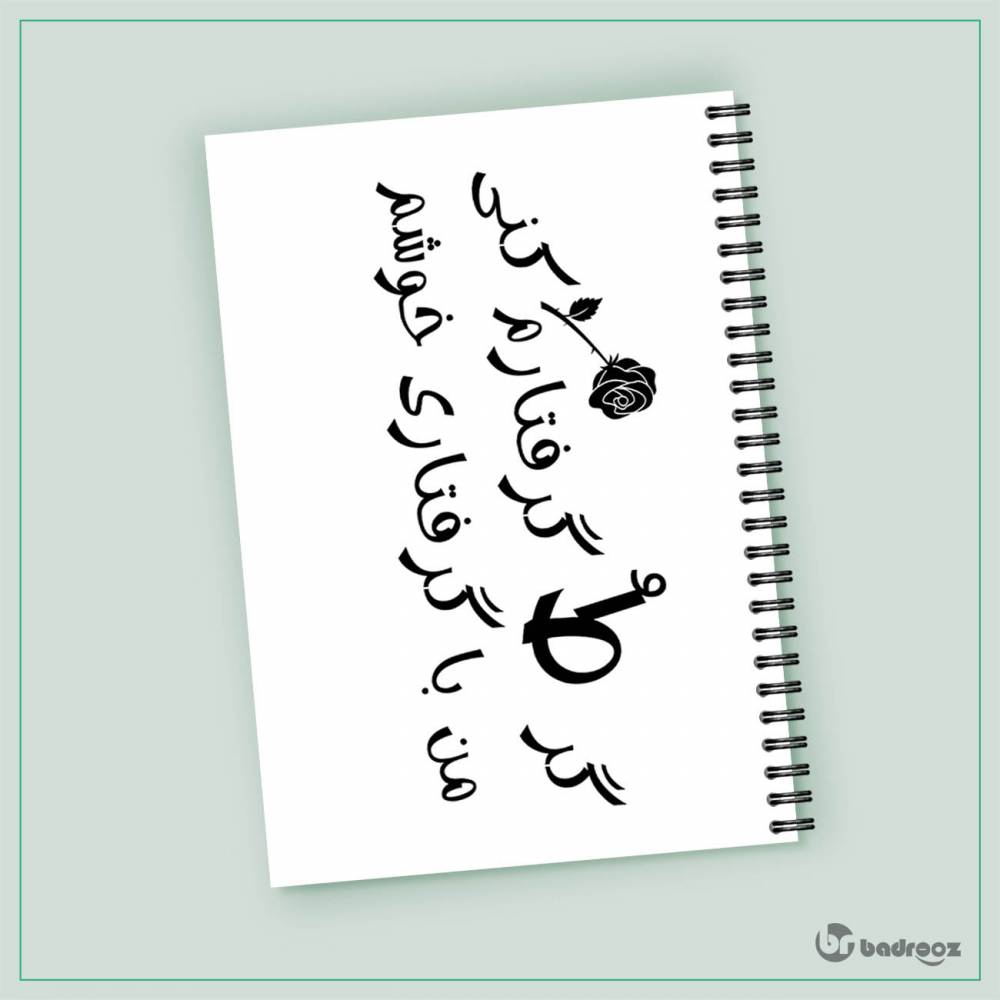 گر طُ گرفتارم کنی
من با گرفتاری خوشم
br badrooz